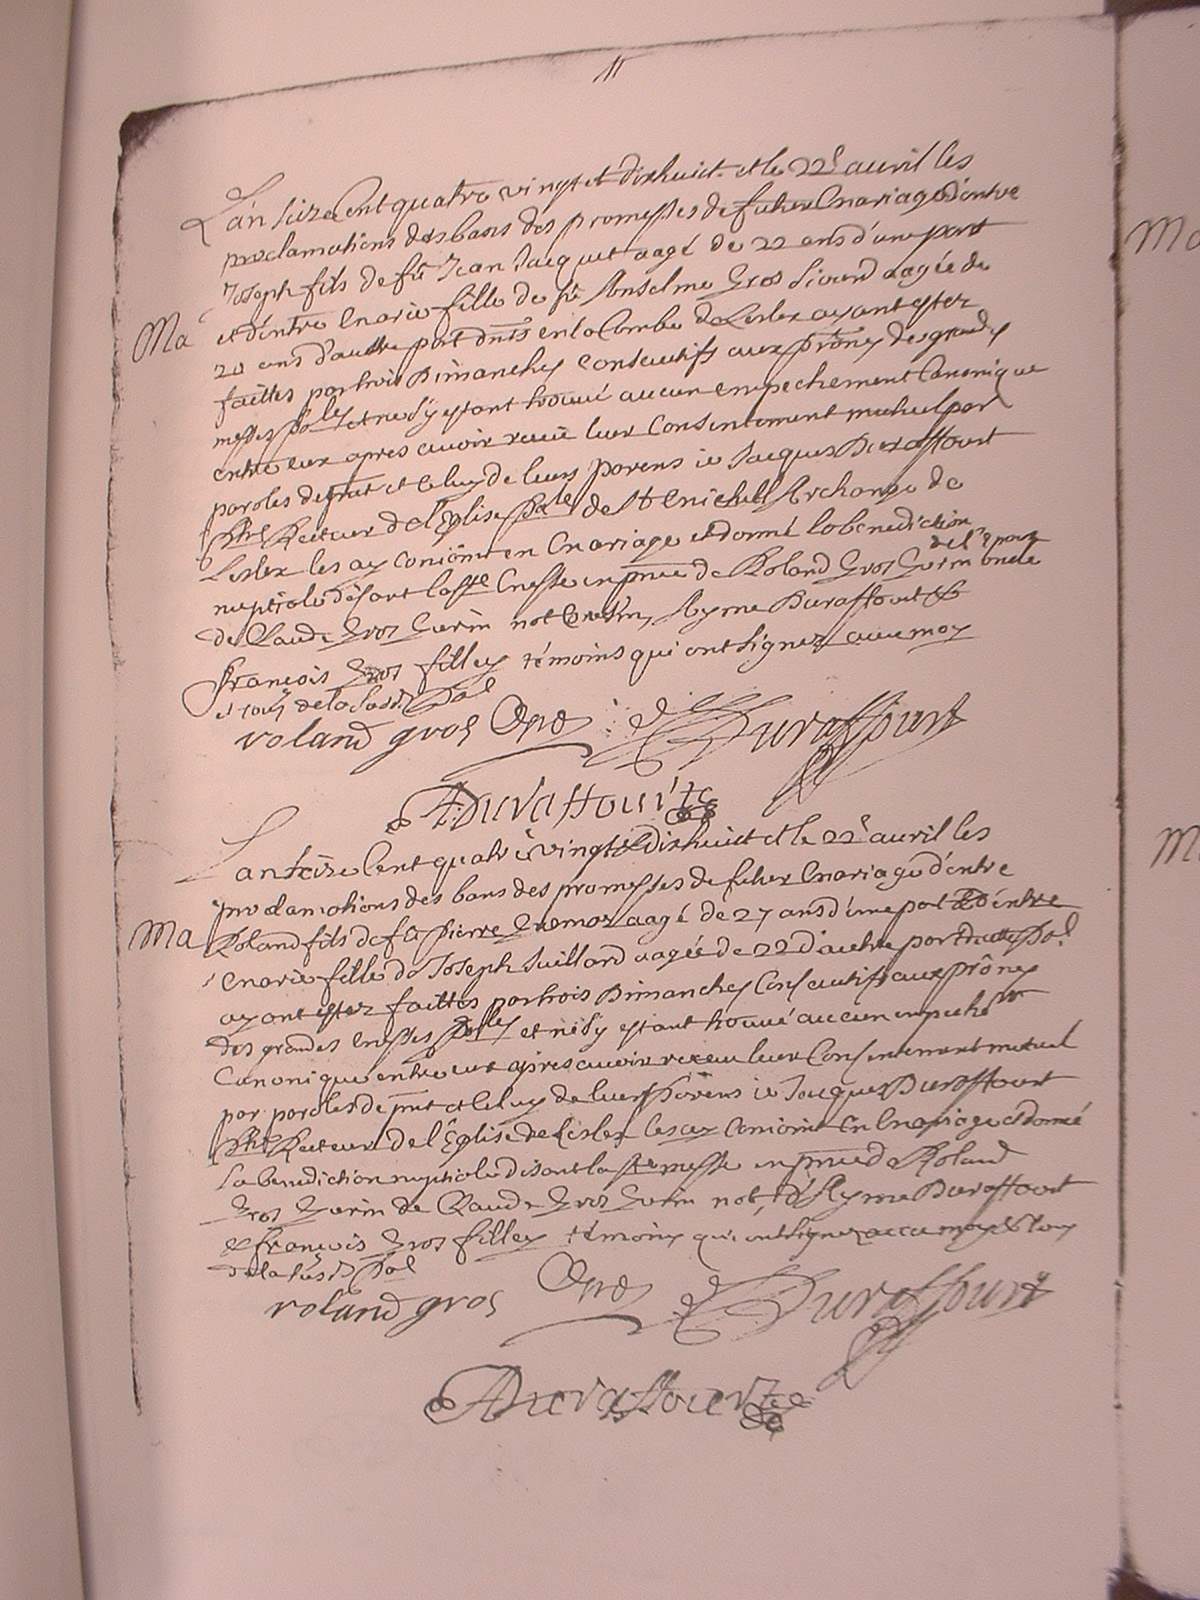 11
Lan seize Cent quatre vingt et dixhuict et le 22e auril les
proclamations des bans des promesses de futur mariage d'entre
Joseph fils de fû Jean Jacquet aagé de 22 ans d'une part
et d'entre marie fille de fû Anselme Gros aagée de
Ma
20 ans d'autre part en la Combe de Lesler ayant estez
faittes par trois Dimanches Consecutifs aux prônes des grandes
messes et ne s'y estant trouué aucun empechement Canonique
entre eux apres auoir receu leur Consentement mutuel par
paroles de pnt et Celuy de leurs parens ie Jacques Duraffourt
ptre Recteur de l'Eglise de St michel Archange de
Lesler les ay Conioint en mariage et donné la benediction
nuptiale disant la messe en pnce de Roland Gros Gurin oncle
de l'epoux
de Claude Gros Gurin not Ayme Duraffourt &
françois Gros filley témoins qui ont signez auec moy
de la
roland gros Duraffourt
A Duraffourt
Lan seize Cent quatre vingt & dixhuict et le 22e auril les
proclamations des bans des promesses de futur mariage d'entre
Ma
Roland fils de fû Pierre aagé de 27 ans d'une part & d'entre
marie fille de Joseph Juillard aagée de 22 d'autre part
ayant estez faittes par trois Dimanches Consecutifs aux prônes
des grandes messes et ne s'y estant trouué aucun empechemt
Canonique entre eux apres auoir receu leur Consentement mutuel
par paroles de pnt et Celuy de leurs Parens ie Jacques Duraffourt
ptre Recteur de l'Eglise de Lesler les ay Conioint en mariage & donné
la benediction nuptiale disant la messe en pnce de Roland
Gros Gurin de Claude Gros Gurin not, d'Ayme Duraffourt
& françois Gros filley témoins qui ont signez auec moy
de la
roland gros Duraffourt
A Duraffourt
Ma
Ma